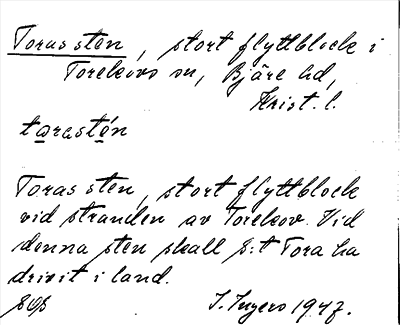 Toras sten, stort flyttblock i
Torekovs sn, Bjäre hd,
Krist. l.
tɷrastén
Toras sten, stort flyttblock
vid stranden av Torekov. Vid
denna sten skall S:t Tora ha
drivit i land.
I. Ingers 1947.